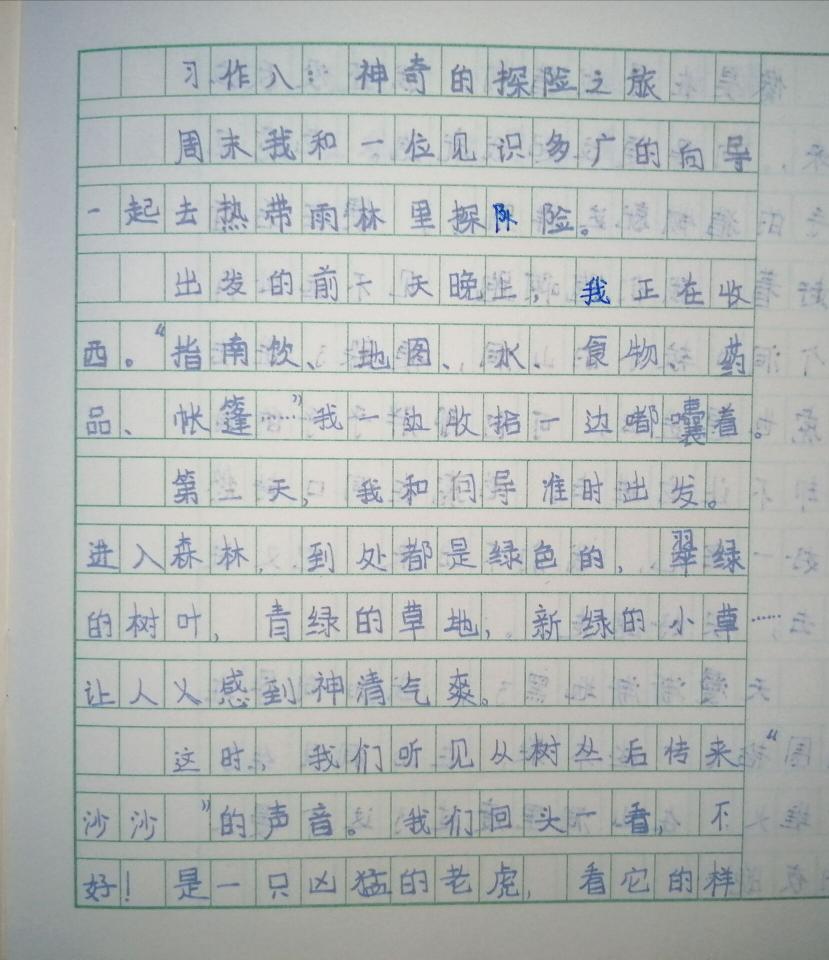 习作八：神奇的探险之旅
周末我和一位见识多广的向导
一起去热带雨林里探险。
出发的前一天晚上，我正在收
西。“指南饮、地图、水、食物、药
品、帐篷……”我一边收拾一边嘟囔着。
第二天，我和向导准时出发。
进入森林，到处都是绿色的，翠绿
的树叶，青绿的草地，新绿的小草……
让人感到神清气爽。
这时，我们听见从树丛后传来“
沙沙”的声音。我们回头一看，不
好！是一只凶猛的老虎，看它的样